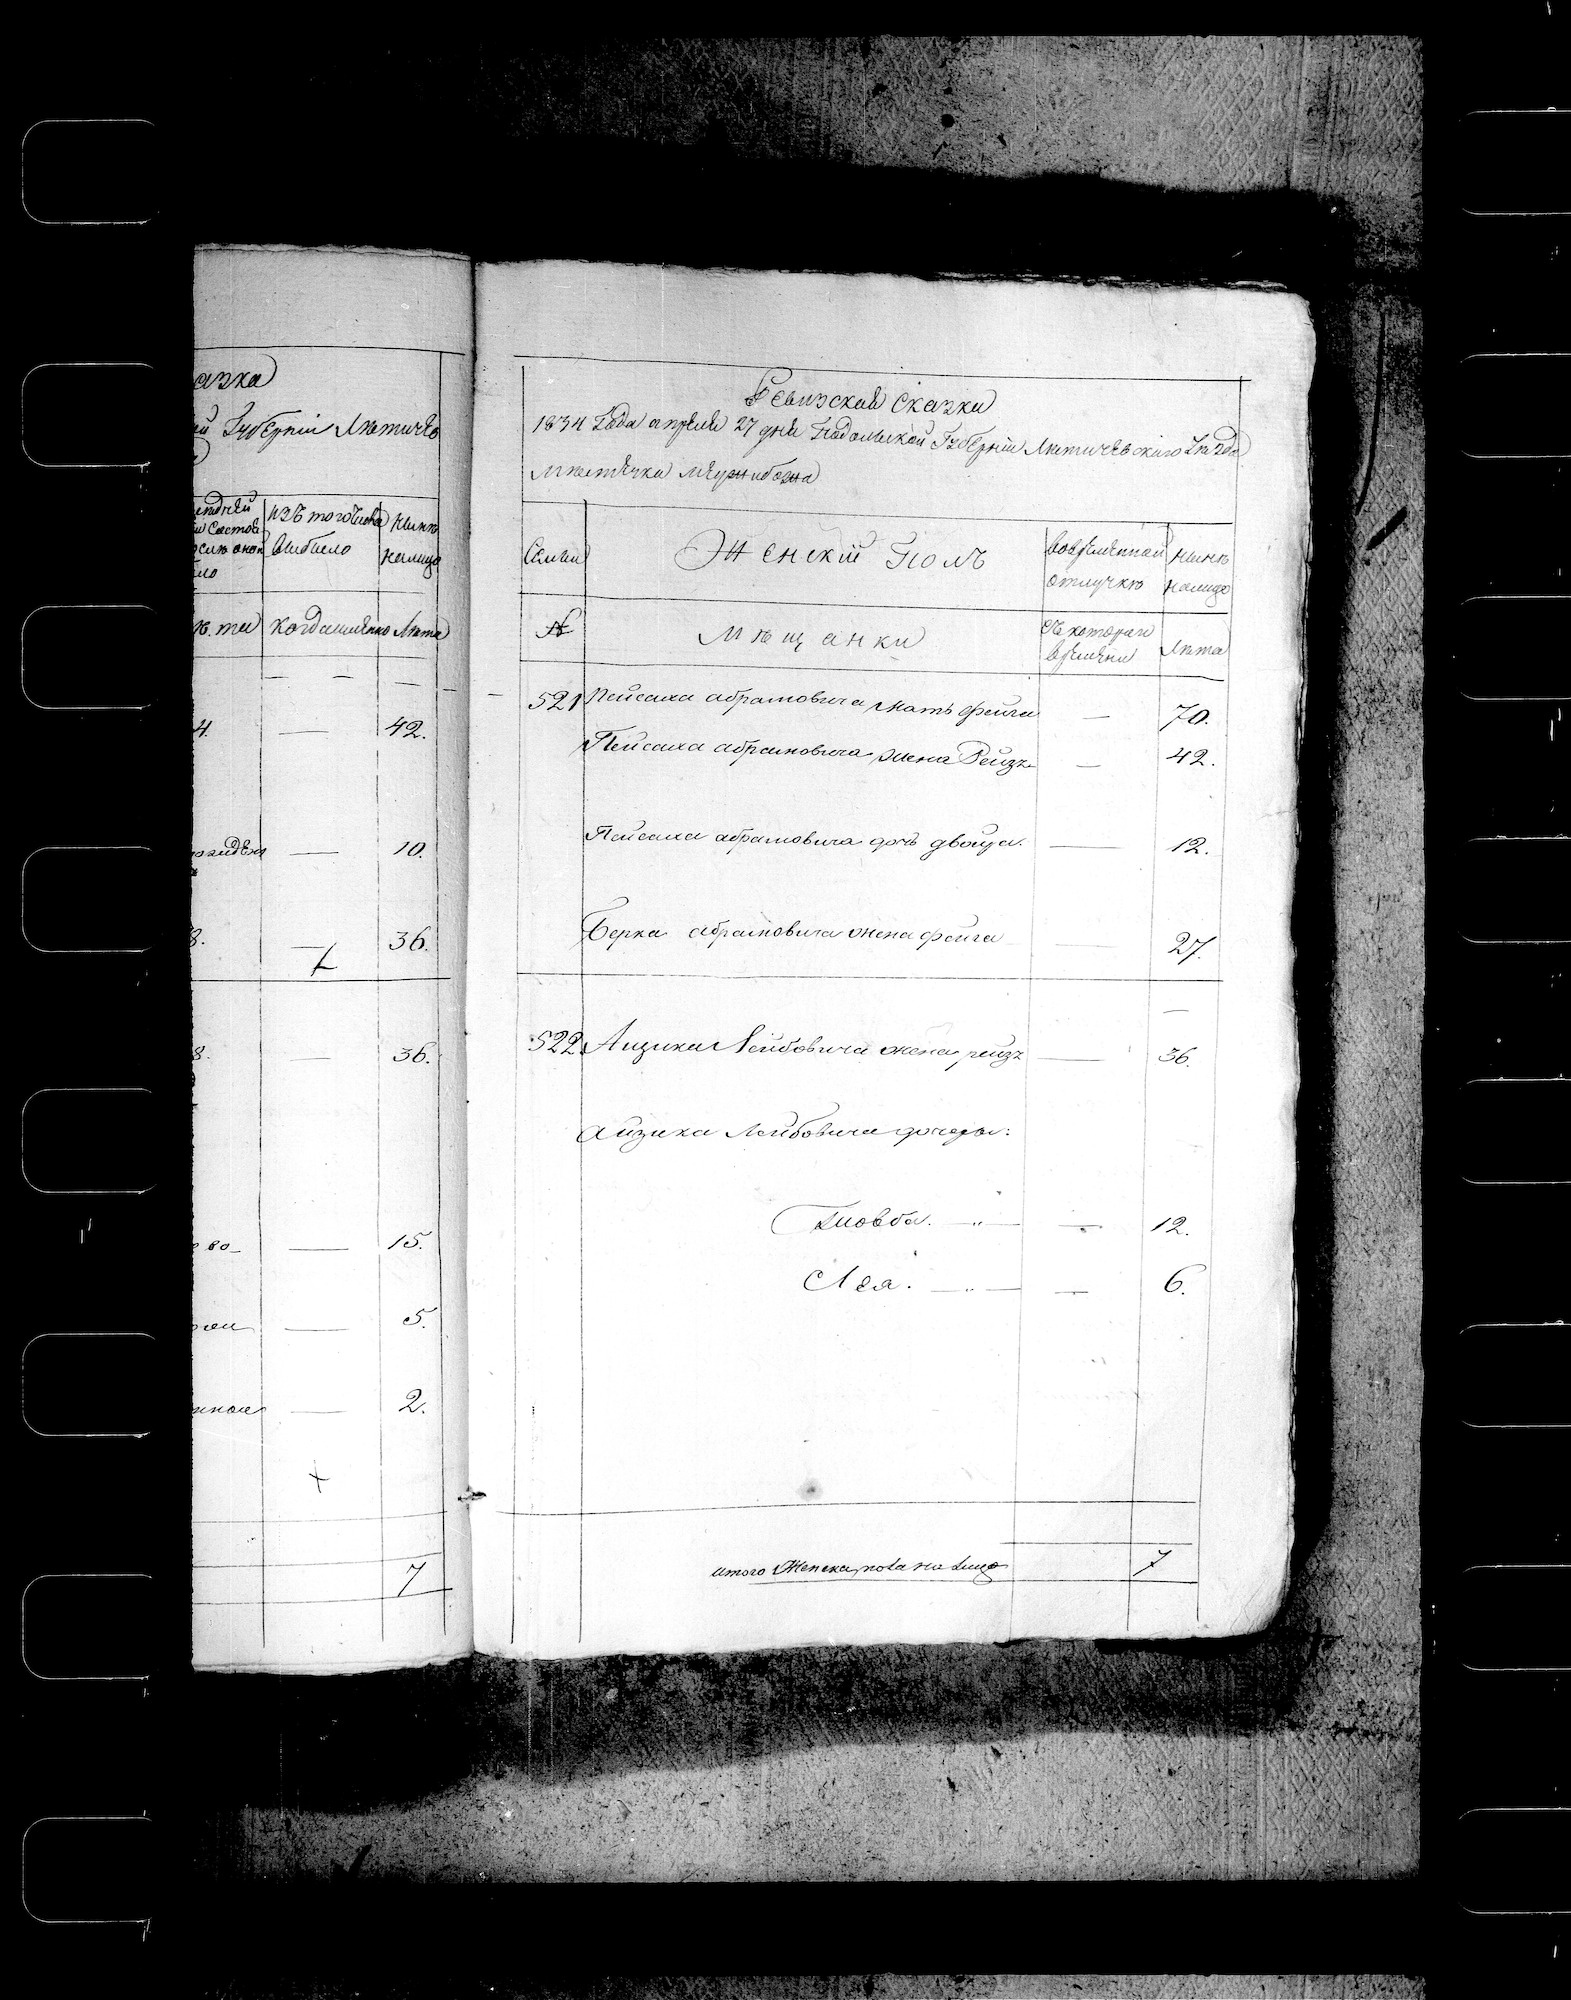 азка
ей Губерніи Литичев
изъ того числа
выбыло
нынѣ
налицо
когда именно
Лѣта
4.
42.
10.
8.
36.
8.
36.
15.
5.
2.
7
Ревизская Сказка
1834 Года апреля 27 дня Подольской Губерніи Литичевскаго уѣзда
мѣстечка Меужибожа
Семьи
Женскій Полъ
вовременной отлучкѣ
нынѣ налицо
№
мѣщанки
съ котораго времени
Лѣта
521 Пейсаха абрамовича мать фейга — 70.
Пейсаха абрамовича жена Рейзъ — 42.
Пейсаха абрамовича дочь двойра — 12.
Берка абрамовича жена фейга — 27.
522 Айзика Лейбовича жена рейзъ — 36.
айзика Лейбовича дочеры:
— " — — 12.
Лея. — " — — 6.
итого Женска пола на лицо 7